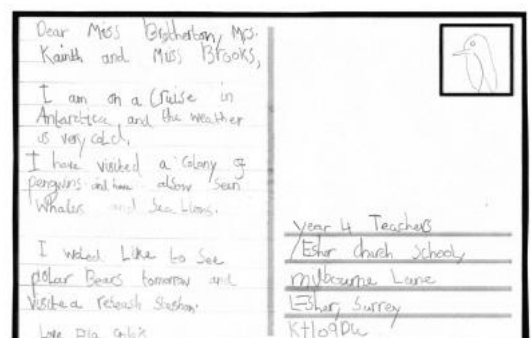 Dear Miss Brotherton, Mrs.
Kainth and Miss Brooks,
I am on a Cruise in
Antarctica, and the weather
is very cold.
I have visited a colony of
penguins and have alsow seen
Whales and Sea Lions.
I woled Like to see
polar Bears tomorrow and
visited a reseash Stashon.
Love
year 4 Teachers
Esher church School,
milbourne Lane
Esher, Surrey
Kt109Du